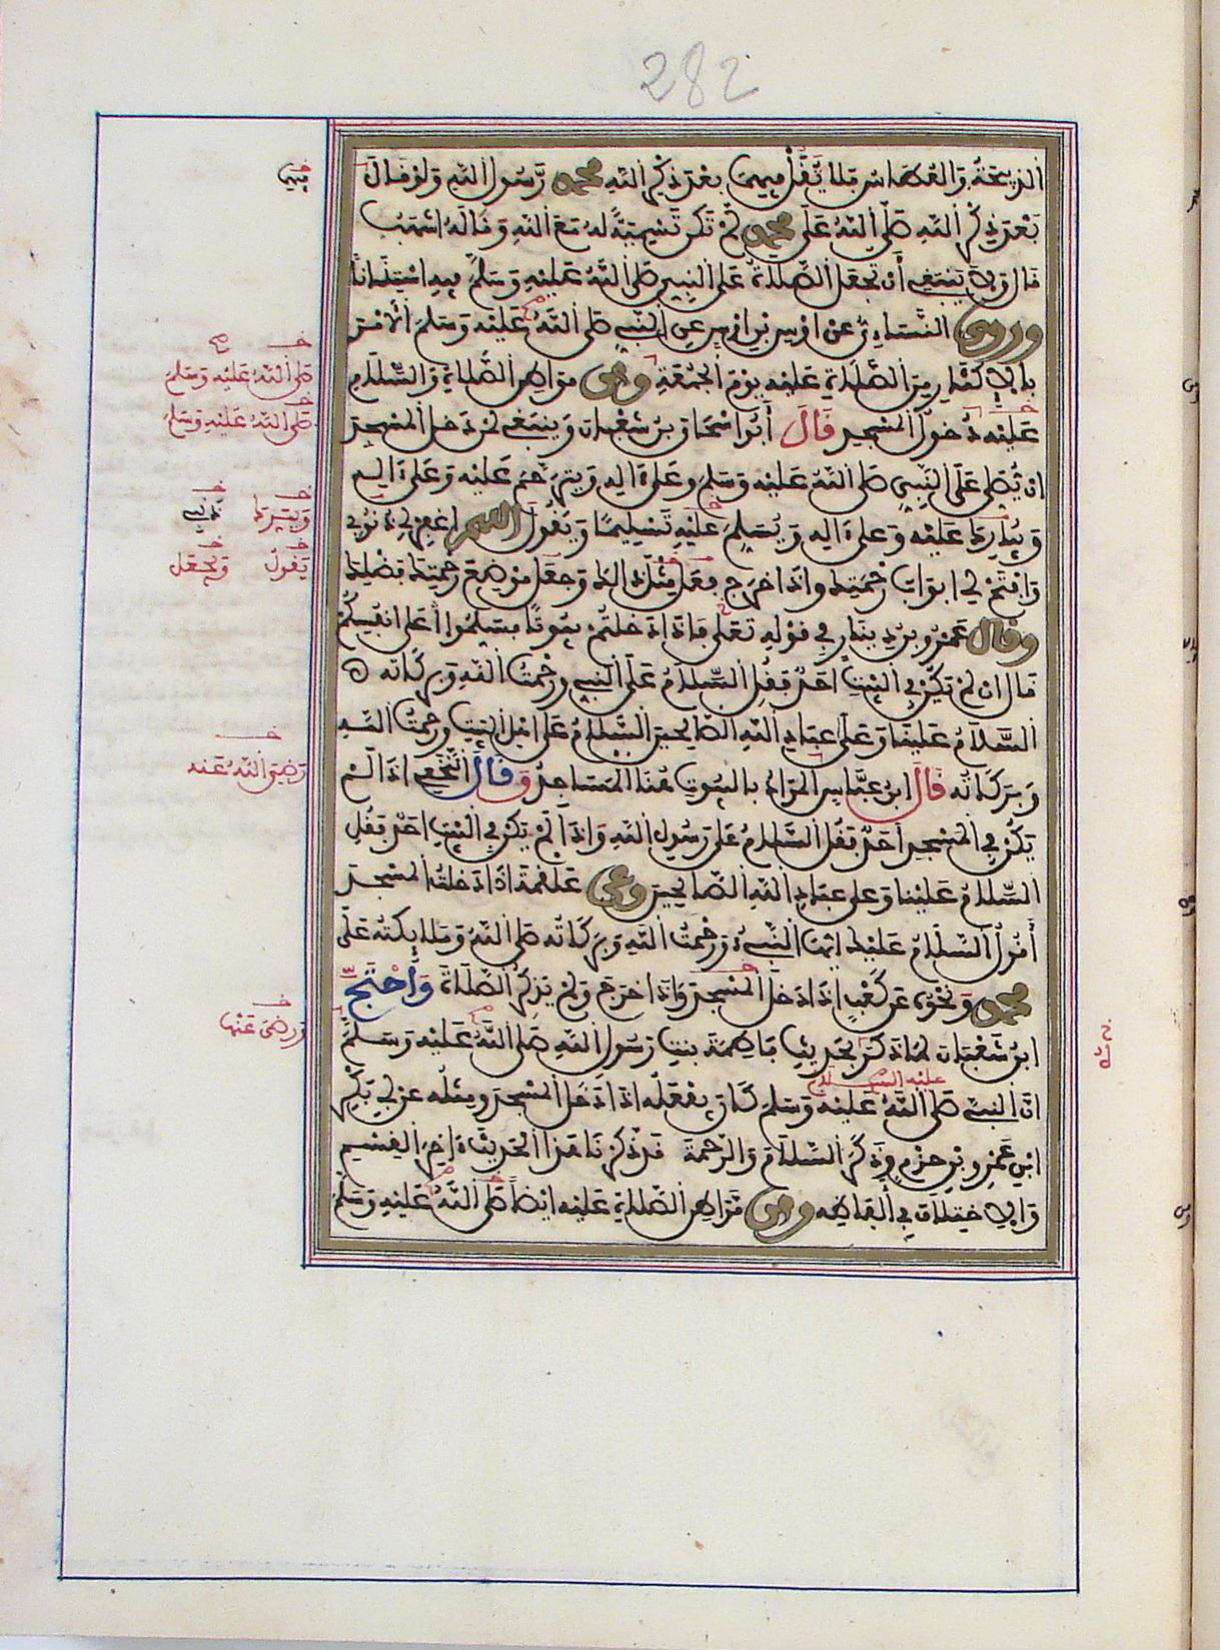 282
الذبيحة والعطاس فلا تقل فيهما بعد ذكر الله محمد رسول الله ولو قال
بعد ذكر الله صلى الله على محمد لم تكن تسمية له مع الله وقاله اشهب
قال ولا ينبغي أن تجعل الصلاة على النبي صلى الله عليه وسلم فيه استنانا
وروى النساءي عن اوس بن اوس عن النبي صلى الله عليه وسلم الامر
بالاكثار من الصلاة عليه يوم الجمعة ومن مواطن الصلاة والسلام
عليه دخول المسجد قال أبو اسحاق بن شعبان وينبغي لمن دخل المسجد
ان يصلي على النبي صلى الله عليه وسلم وعلى ءاله ويترحم عليه وعلى ءاله
ويبارك عليه وعلى ءاله ويسلم عليه تسليما ويقول اللهم اغفر لي ذنوبي
وافتح لي ابواب رحمتك واذا خرج فعل مثل ذالك وجعل موضع رحمتك فضلك
وقال عمرو بن دينار في قوله تعلى فاذا دخلتم بيوتا فسلموا على انفسكم
قال ان لم يكن في البيت احد فقل السلام على النبي ورحمت الله وبركاته
السلام علينا وعلى عباد الله الصالحين السلام على اهل البيت ورحمت الله
وبركاته قال ابن عباس المراد بالبيوت هنا المساجد وقال النخعي اذا لم
يكن في المسجد أحد فقل السلام على رسول الله واذا لم يكن في البيت احد فقل
السلام علينا وعلى عباد الله الصالحين وعن علقمة اذا دخلت المسجد
أقول السلام عليك ايها النبيء ورحمت الله وبركاته صلى الله وملائكته على
محمد ونحوه عن كعب اذا دخل المسجد واذا خرج ولم يذكر الصلاة واحتج
ابن شعبان لما ذكره بحديث فاطمة بنت رسول الله صلى الله عليه وسلم
عليه السلام
ان النبي صلى الله عليه وسلم كان يفعله اذا دخل المسجد ومثله عن ابي بكر
ابن عمرو بن حزم وذكر السلام والرحمة فد ذكرنا هذا الحديث ءاخر القسم
والاختلاف في ألفاظه ومن مواطن الصلاة عليه ايضا صلى الله عليه وسلم
فيها
صلى الله عليه وسلم
صلى الله عليه وسلم
ويبرك ذنبي
يقول ويجعل
رضى الله عنه
ورضى عنها